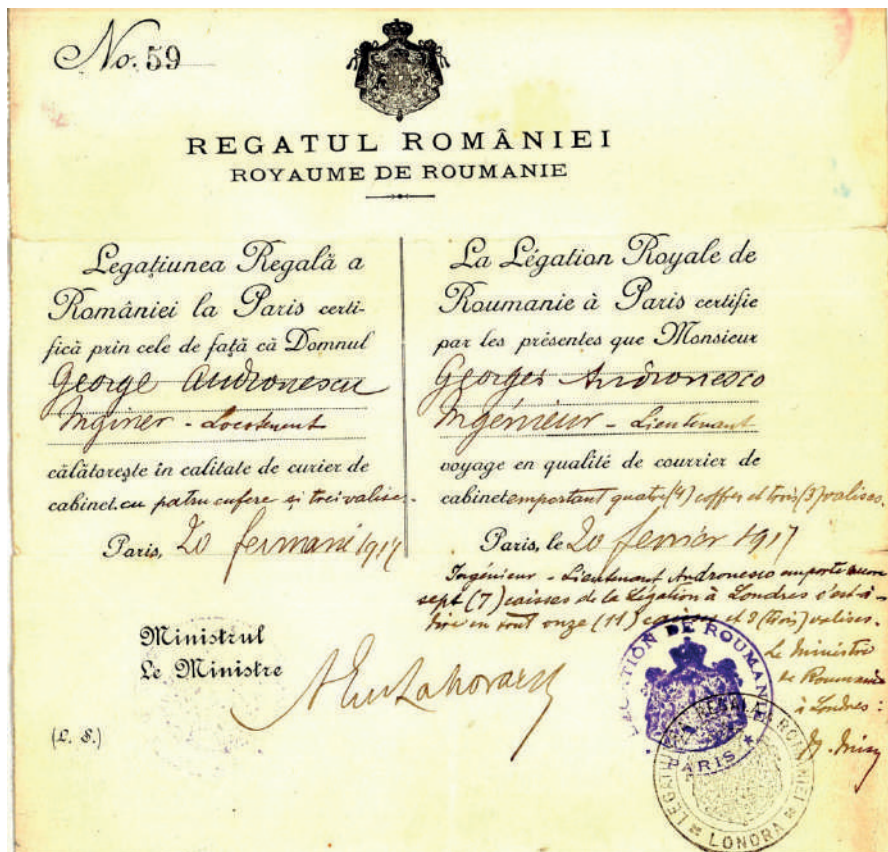 No. 59
REGATUL ROMÂNIEI
ROYAUME DE ROUMANIE
Legațiunea Regală a
României la Paris certi-
fică prin cele de față că Domnul
George Andronescu
Inginer - Locotenent
călătorește în calitate de curier de
cabinet cu patru cufere și trei valise.
Paris, 20 1917
La Légation Royale de
Roumanie à Paris certifie
par les présentes que Monsieur
Georges Andronesco
Ingénieur - Lieutenant
voyage en qualité de courrier de
cabinet emportant quatre (4) coffres et trois (3) valises.
Paris, le 20 fevrier 1917
Ingénieur - Lieutenant Andronesco emporte encore
sept (7) caisses de la Légation à Londres c'est-à-
dire en tout onze (11) caisses et 3 (trois) valises.
Le Ministre
de Roumanie
à Londres:
Ministrul
Le Ministre
(L. S.)
LEGATION DE ROUMANIE
PARIS
LEGAȚIUNEA REGALĂ A ROMÂNIEI
LONDRA